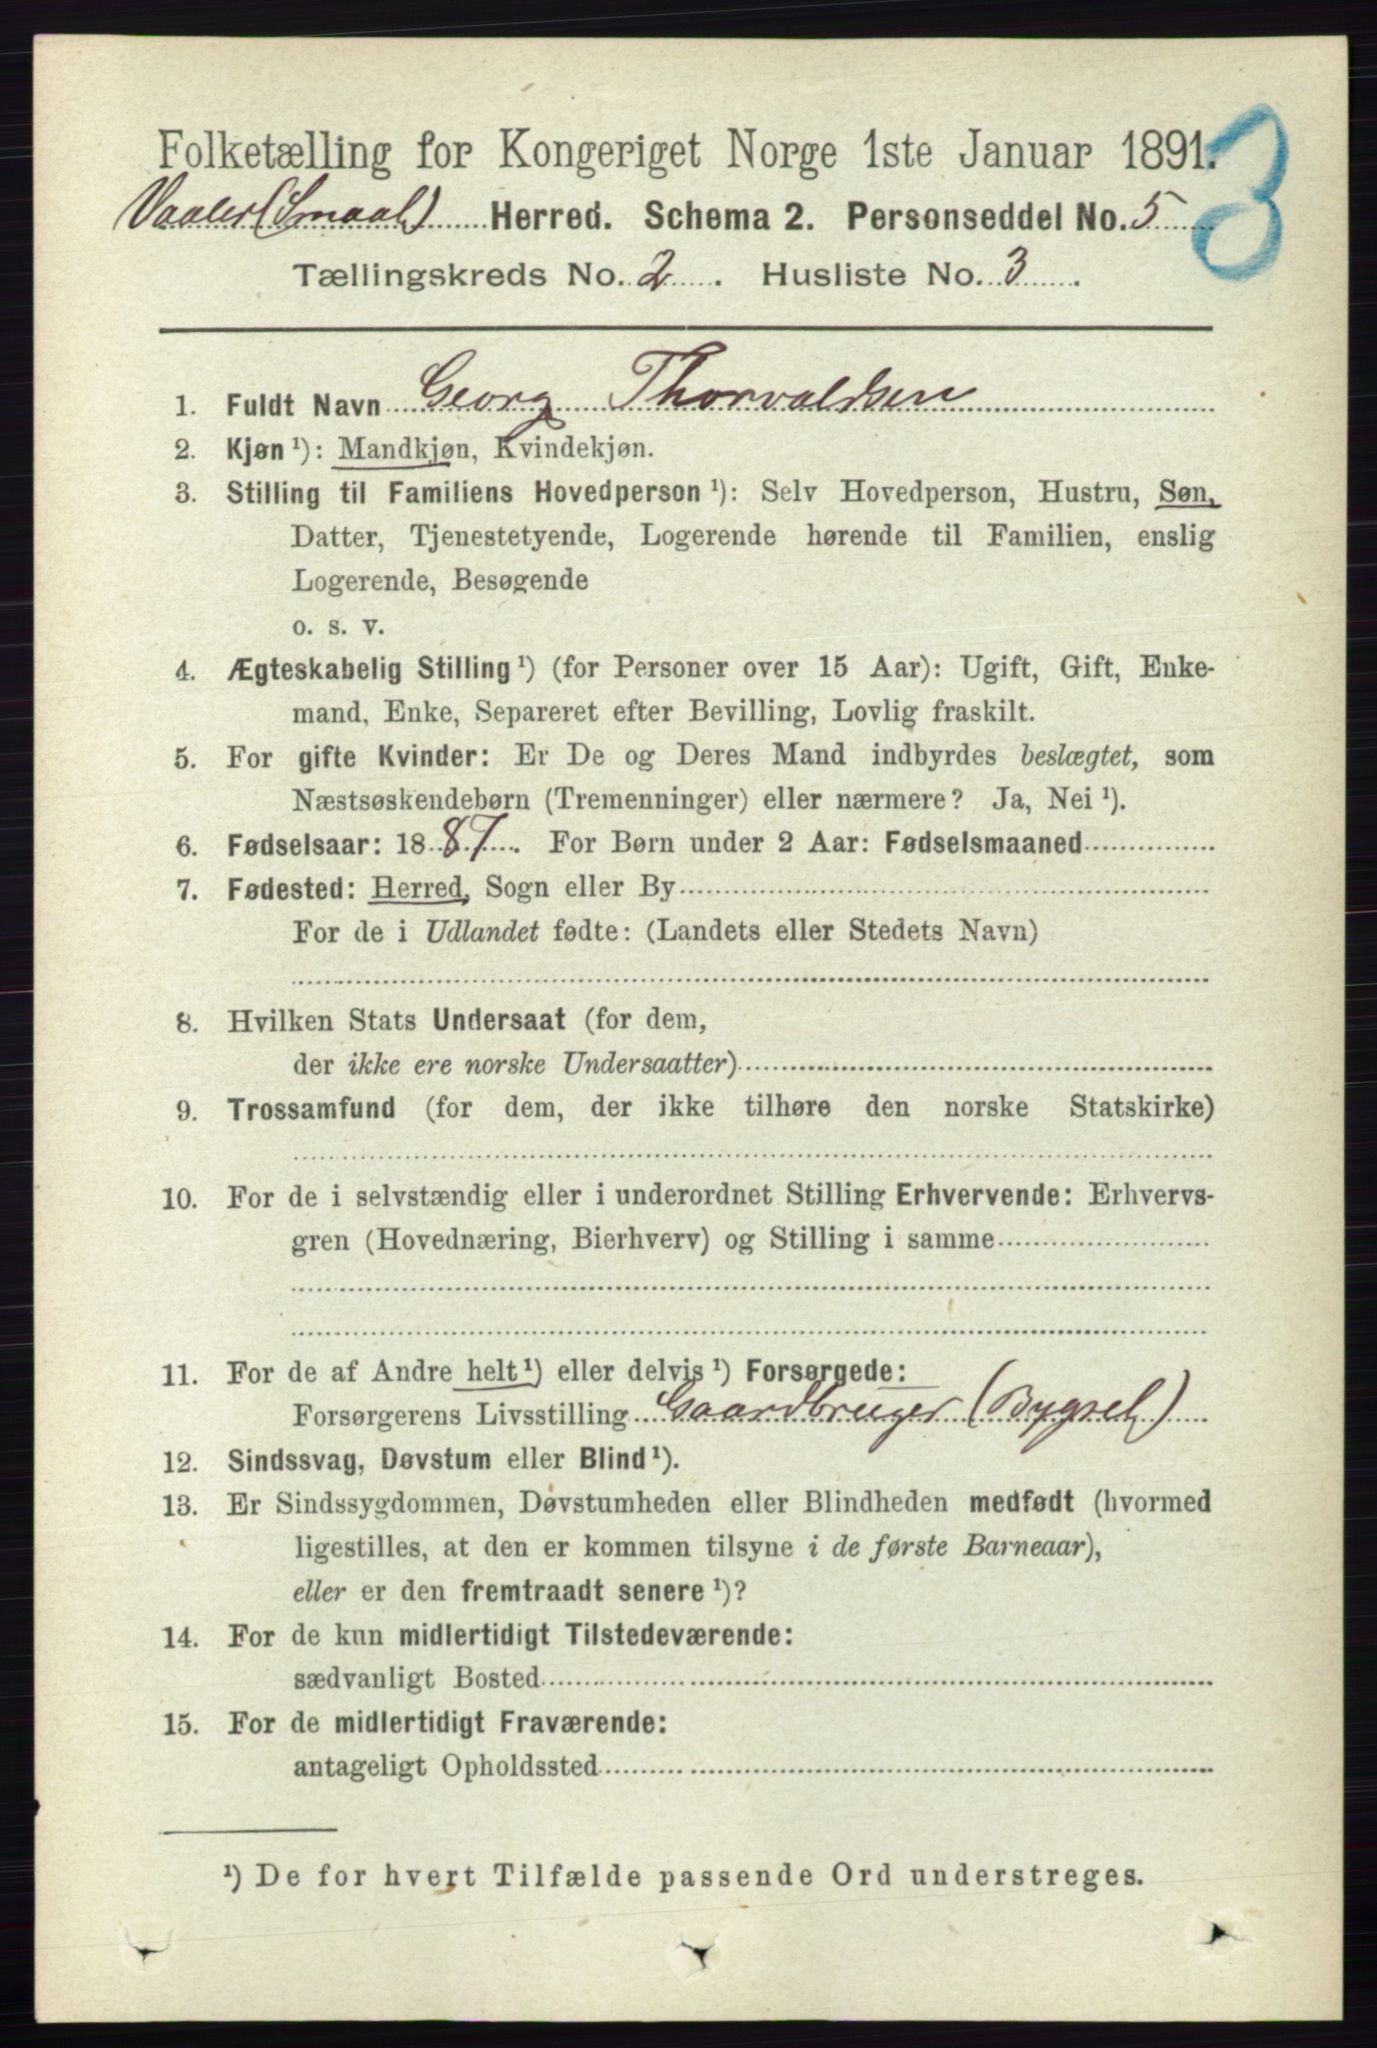 Folketælling for Kongeriget Norge 1ste Januar 1891.
3
Vaaler (Smaal) Herred. Schema 2. Personseddel No. 5
Tællingskreds No. 2. Husliste No. 3.
1. Fuldt Navn Georg Thorvaldsen
2. Kjøn ¹): Mandkjøn, Kvindekjøn.
3. Stilling til Familiens Hovedperson ¹): Selv Hovedperson, Hustru, Søn,
Datter, Tjenestetyende, Logerende hørende til Familien, enslig
Logerende, Besøgende
o. s. v.
4. Ægteskabelig Stilling ¹) (for Personer over 15 Aar): Ugift, Gift, Enke-
mand, Enke, Separeret efter Bevilling, Lovlig fraskilt.
5. For gifte Kvinder: Er De og Deres Mand indbyrdes beslægtet, som
Næstsøskendebørn (Tremenninger) eller nærmere? Ja, Nei ¹).
6. Fødselsaar: 1887. For Børn under 2 Aar: Fødselsmaaned
7. Fødested: Herred, Sogn eller By
For de i Udlandet fødte: (Landets eller Stedets Navn)
8. Hvilken Stats Undersaat (for dem,
der ikke ere norske Undersaatter)
9. Trossamfund (for dem, der ikke tilhøre den norske Statskirke)
10. For de i selvstændig eller i underordnet Stilling Erhvervende: Erhvervs-
gren (Hovednæring, Bierhverv) og Stilling i samme
11. For de af Andre helt ¹) eller delvis ¹) Forsørgede:
Forsørgerens Livsstilling Gaardbruger (Bygsel)
12. Sindssvag, Døvstum eller Blind ¹).
13. Er Sindssygdommen, Døvstumheden eller Blindheden medfødt (hvormed
ligestilles, at den er kommen tilsyne i de første Barneaar),
eller er den fremtraadt senere ¹)?
14. For de kun midlertidigt Tilstedeværende:
sædvanligt Bosted
15. For de midlertidigt Fraværende:
antageligt Opholdssted
¹) De for hvert Tilfælde passende Ord understreges.